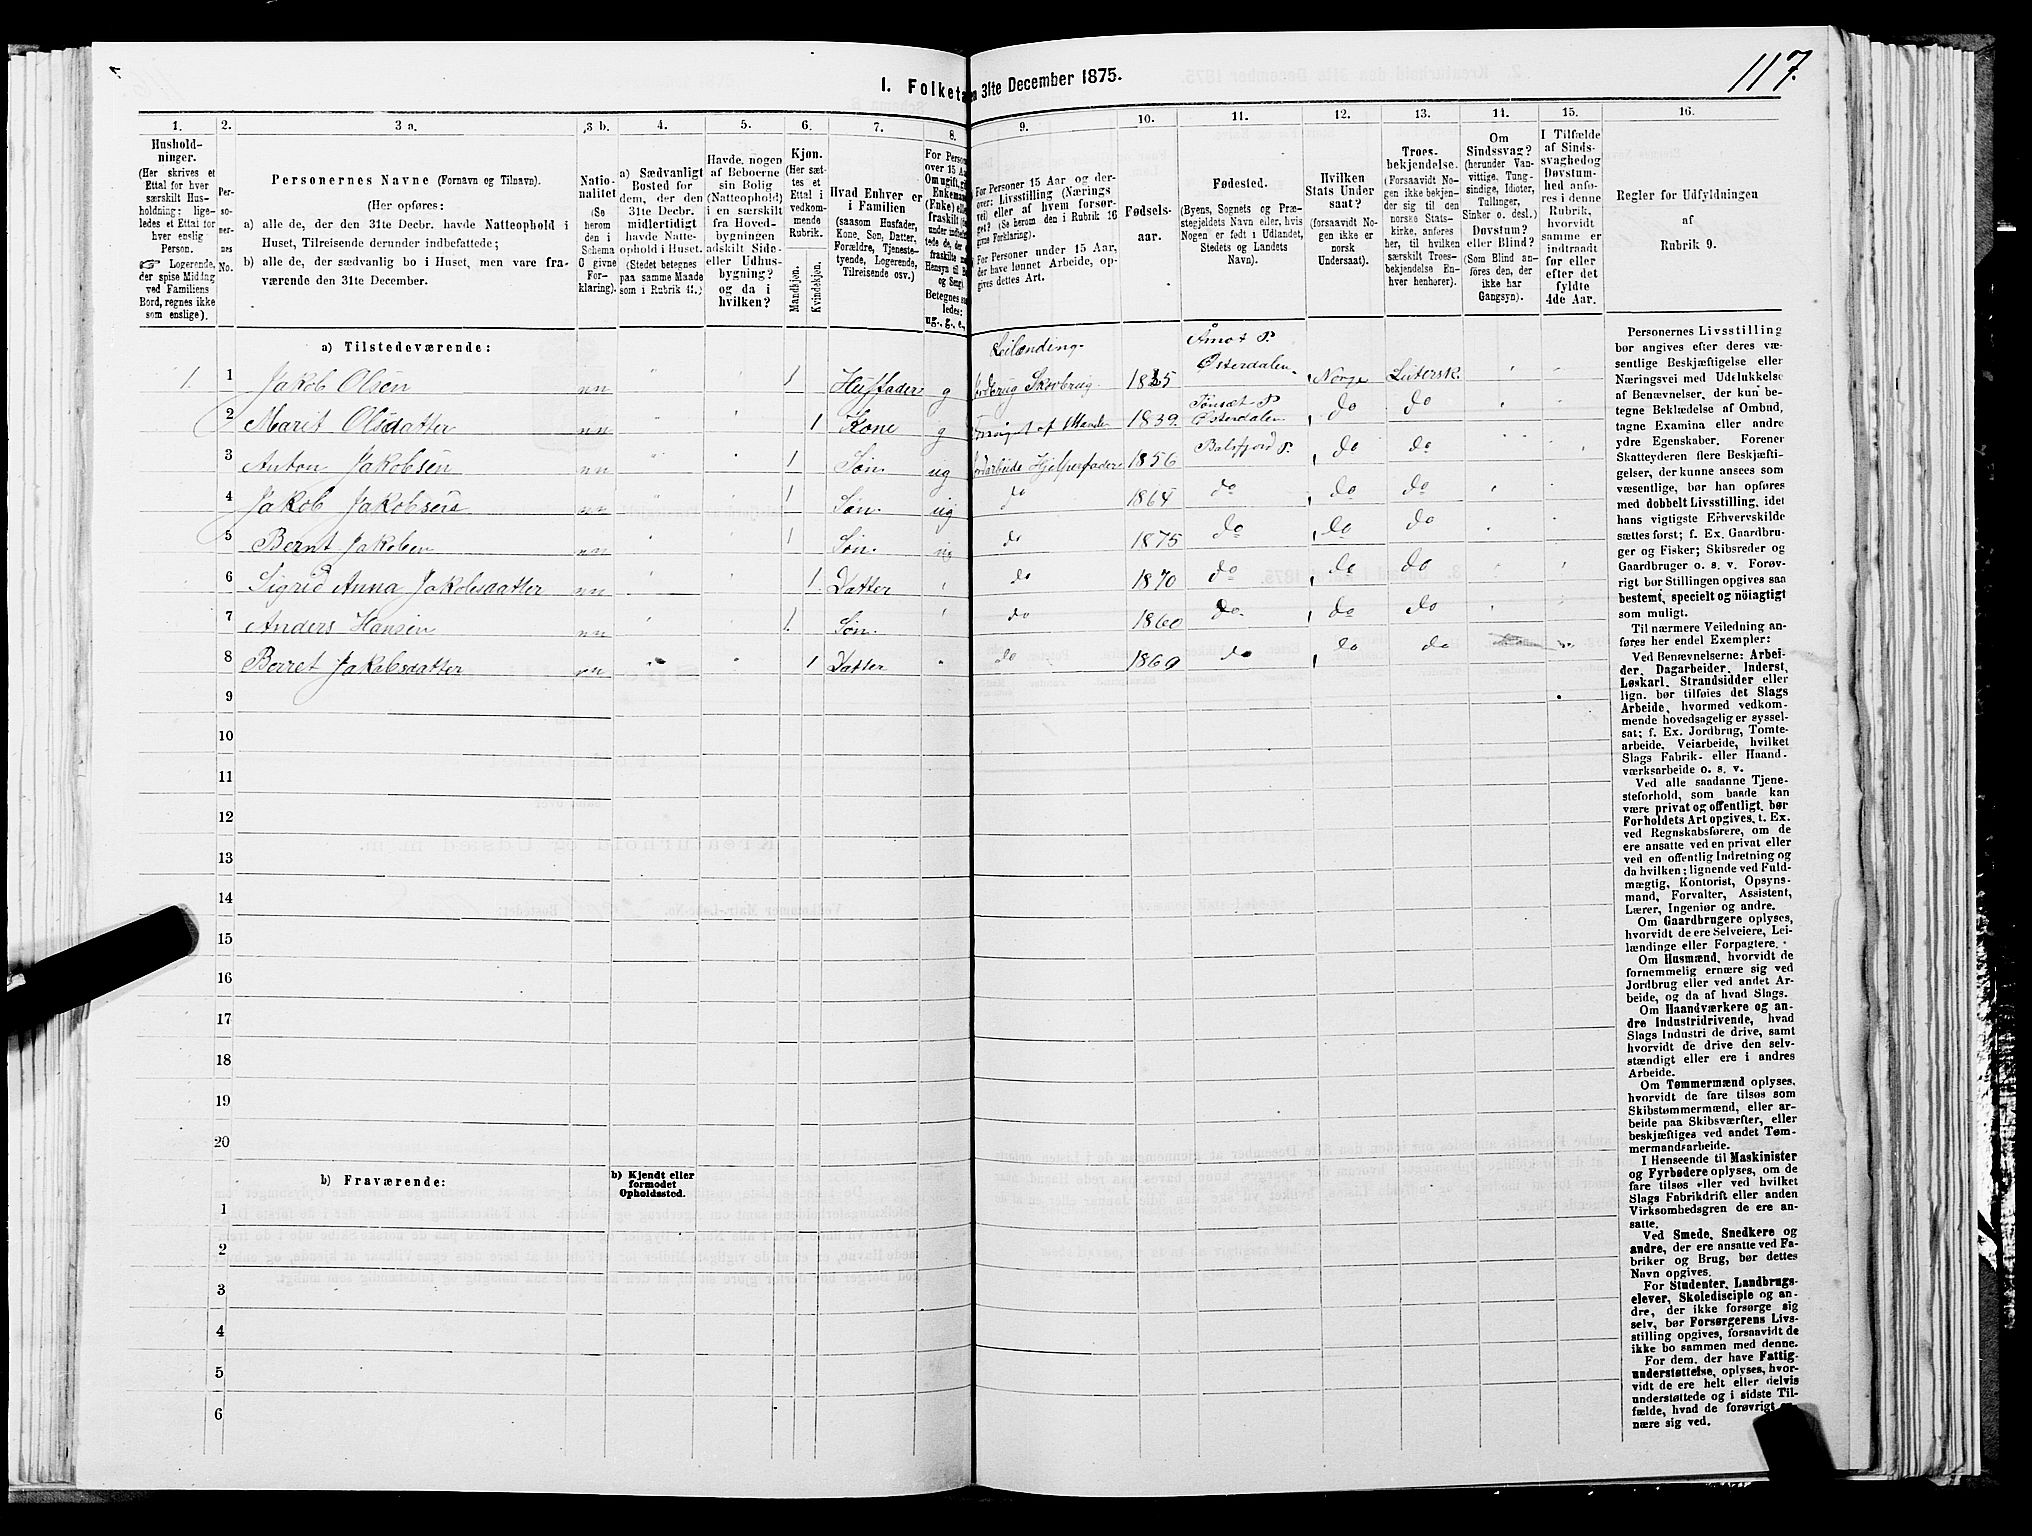 117.
I. Folketa
n 31te December 1875.
1.
2.
3 a.
3 b.
4.
5.
6.
7.
8.
9.
10.
11.
12.
13.
14.
15.
16.
Hushold-
ninger.
(Her skrives et
Ettal for hver
særskilt Hus-
holdning; lige-
ledes et Ettal for
hver enslig
Person.
☞ Logerende,
der spise Middag
ved Familiens
Bord, regnes ikke
som enslige).
Per-
so-
ner-
nes
No.
Personernes Navne (Fornavn og Tilnavn).
(Her opføres:
a) alle de, der den 31te Decbr. havde Natteophold i
Huset, Tilreisende derunder indbefattede;
b) alle de, der sædvanlig bo i Huset, men vare fra-
værende den 31te December.
Natio-
nalitet
(Se
herom
den i
Schema
6 givne
For-
klaring).
a) Sædvanligt
Bosted for
dem, der den
31te Decbr.
midlertidigt
havde Natte-
ophold i Huset.
(Stedet betegnes
paa samme Maade
som i Rubrik 11.)
Havde nogen
af Beboerne
sin Bolig
(Natteophold)
i en særskilt
fra Hoved-
bygningen
adskilt Side-
eller Udhus-
bygning?
og da i
hvilken?
Kjøn.
(Her sæt-
tes et
Ettal i
vedkom-
mende
Rubrik.
Mandkjøn.
Kvindekjøn.
Hvad Enhver er
i Familien
(saasom Husfader,
Kone, Søn, Datter,
Forældre, Tjeneste-
tyende, Logerende,
Tilreisende osv.)
For Person
over 15 Aar
Om ugift, gi
Enkemand
(Enke) elle
fraskilt
Betegnes saa
ledes:
ug., g., e.,
For Personer 15 Aar og der-
over: Livsstilling (Nærings
vei) eller af hvem forsør-
get? (Se herom den i Rubrik 16
givne Forklaring).
For Personer under 15 Aar,
der have lønnet Arbeide, op-
gives dettes Art.
Fødsels-
aar.
Fødested.
(Byens, Sognets og Præ-
stegjeldets Navn eller, hvis
Nogen er født i Udlandet,
Stedets og Landets
Navn).
Hvilken
Stats Under
saat?
(forsaavidt No-
gen ikke er
norsk
Undersaat).
Troes-
bekjendelse.
(Forsaavidt No-
gen ikke bekjen-
der sig til den
norske Stats-
kirke, anføres
her, til hvilken
særskilt Troes-
bekjendelse En-
hver henhører).
Om
Sindssvag?
(herunder Van-
vittige, Tung-
sindige, Idioter,
Tullinger,
Sinker o. desl.)
Døvstum?
eller Blind?
(Som Blind an-
føres den, der
ikke har
Gangsyn).
I Tilfælde
af Sinds-
svaghed og
Døvstum-
hed anfø-
res i denne
Rubrik,
hvorvidt
samme er
indtraadt
før eller
efter det
fyldte
4de Aar.
Regler for Udfyldningen
af
Rubrik 9.
a) Tilstedeværende:
Leilænding.
Åmot P.
1. 1 Jakob Olsen nn " " 1 Husfader g Jordbrug Skovbrug 1825 Østerdalen Norge Lutersk
Tønset P
2 Marit Olsdatter nn " " 1 Kone g Forsørget af Manden 1839 Østerdalen do do
3 Anton Jakobsen nn " " 1 Søn ug Jordarbeide Hjelper fader 1856 Balsfjord P. do do
4 Jakob Jakobsen nn " " 1 Søn. ug do 1864 do do do
5 Bernt Jakobsen nn " " 1 Søn. ug do 1875 do do do
6 Sigrid Anna Jakobsdatter nn " " 1 Datter " do 1870 do do do
7 Anders Hansen nn " " 1 Søn. " do 1860 do do do
8 Berret Jakobsdatter nn " " 1 Datter " do 1869 do do do
9
10
11
12
13
14
15
16
17
18
19
20
b) Fraværende:
b) Kjendt eller
formodet
Opholdssted.
1
2
3
4
5
6
Personernes Livsstilling
bør angives efter deres væ-
sentlige Beskjæftigelse eller
Næringsvei med Udelukkelse
af Benævnelser, der kun be-
tegne Beklædelse af Ombud,
tagne Examina eller andre
ydre Egenskaber. Forener
Skatteyderen flere Beskjæfti-
gelser, der kunne ansees som
væsentlige, bør han opføres
med dobbelt Livsstilling, idet
hans vigtigste Erhvervskilde
sættes først; f. Ex. Gaardbru-
ger og Fisker; Skibsreder og
Gaardbruger o. s. v. Forøv-
rigt bør Stillingen opgives saa
bestemt, specielt og nöiagtigt
som muligt.
Til nærmere Veiledning an-
føres her endel Exempler:
Ved Benævnelserne: Arbei-
der, Dagarbeider, Inderst,
Løskarl, Strandsidder eller
lign. bør tilføies det Slags
Arbeide, hvormed vedkom-
mende hovedsagelig er syssel-
sat; f. Ex. Jordbrug, Tomte-
arbeide, Veiarbeide, hvilket
Slags Fabrik- eller Haand-
værksarbeide o. s. v.
Ved alle saadanne Tjene-
steforhold, som baade kan
være privat og offentligt, bør
Forholdets Art opgives, t. Ex.
ved Regnskabsførere, om de
ere ansatte ved en privat eller
ved en offentlig Indretning og
da hvilken; lignende ved Fuld-
mægtig, Kontorist, Opsyns-
mand, Forvalter, Assistent,
Lærer, Ingeniør og andre.
Om Gaardbrugere oplyses,
hvorvidt de ere Selveiere, Lei-
lændinge eller Forpagtere.
Om Husmænd, hvorvidt de
fornemmelig ernære sig ved
Jordbrug eller ved andet Ar-
beide, og da af hvad Slags.
Om Haandværkere og an-
dre Industridrivende, hvad
Slags Industri de drive, samt
hvorvidt de drive den selv-
stændigt eller ere i andres
Arbeide.
Om Tømmermænd oplyses,
hvorvidt de fare tilsøs som
Skibstømmermænd, eller ar-
beide paa Skibsværfter, eller
beskjæftiges ved andet Tøm-
mermandsarbeide.
I Henseende til Maskinister
og Fyrbødere oplyses, om de
fare tilsøs eller ved hvilket
Slags Fabrikdrift eller anden
Virksomhedsgren de ere an-
satte.
Ved Smede, Snedkere og
andre, der ere ansatte ved Fa-
briker og Brug, bør dettes
Navn opgives.
For Studenter, Landbrugs-
elever, Skoledisciple og an-
dre, der ikke forsørge sig
selv, bør Forsørgerens Livs-
stilling opgives, forsaavidt de
ikke bo sammen med denne.
For dem, der have Fattig-
understøttelse, oplyses, hvor-
vidt de ere helt eller delvis
understøttede og i sidste Til-
fælde, hvad de forøvrigt er-
nære sig ved.